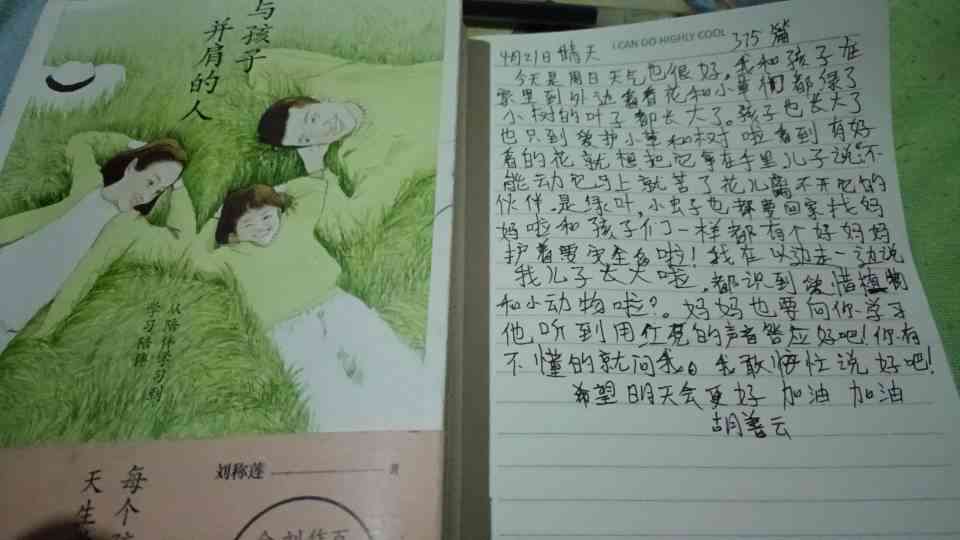 与孩子
并肩的人
从陪伴学习到
学习陪伴
刘称莲 著
每个孩
天生
I CAN DO HIGHLY COOL
4月21日 晴天 375篇
今天是周日天气也很好,我和孩子在
家里到外边看看花和小草都绿了
小树的叶子都长大了。孩子也长大了
也识到爱护小草和树啦看到有好
看的花就想把它拿在手里儿子说不
能动它马上就苦了花儿离不开它的
伙伴是绿叶,小虫子也都要回家找妈
妈啦和孩子们一样都有个好妈妈
护着要安全多啦!我在以边走一边说
我儿子长大啦,都识到爱惜植物
和小动物啦?。妈妈也要向你学习
他听到用红亮的声音答应好吧!你有
不懂的就问我。我敢快忙说好吧!
希望明天会更好 加油 加油
胡善云